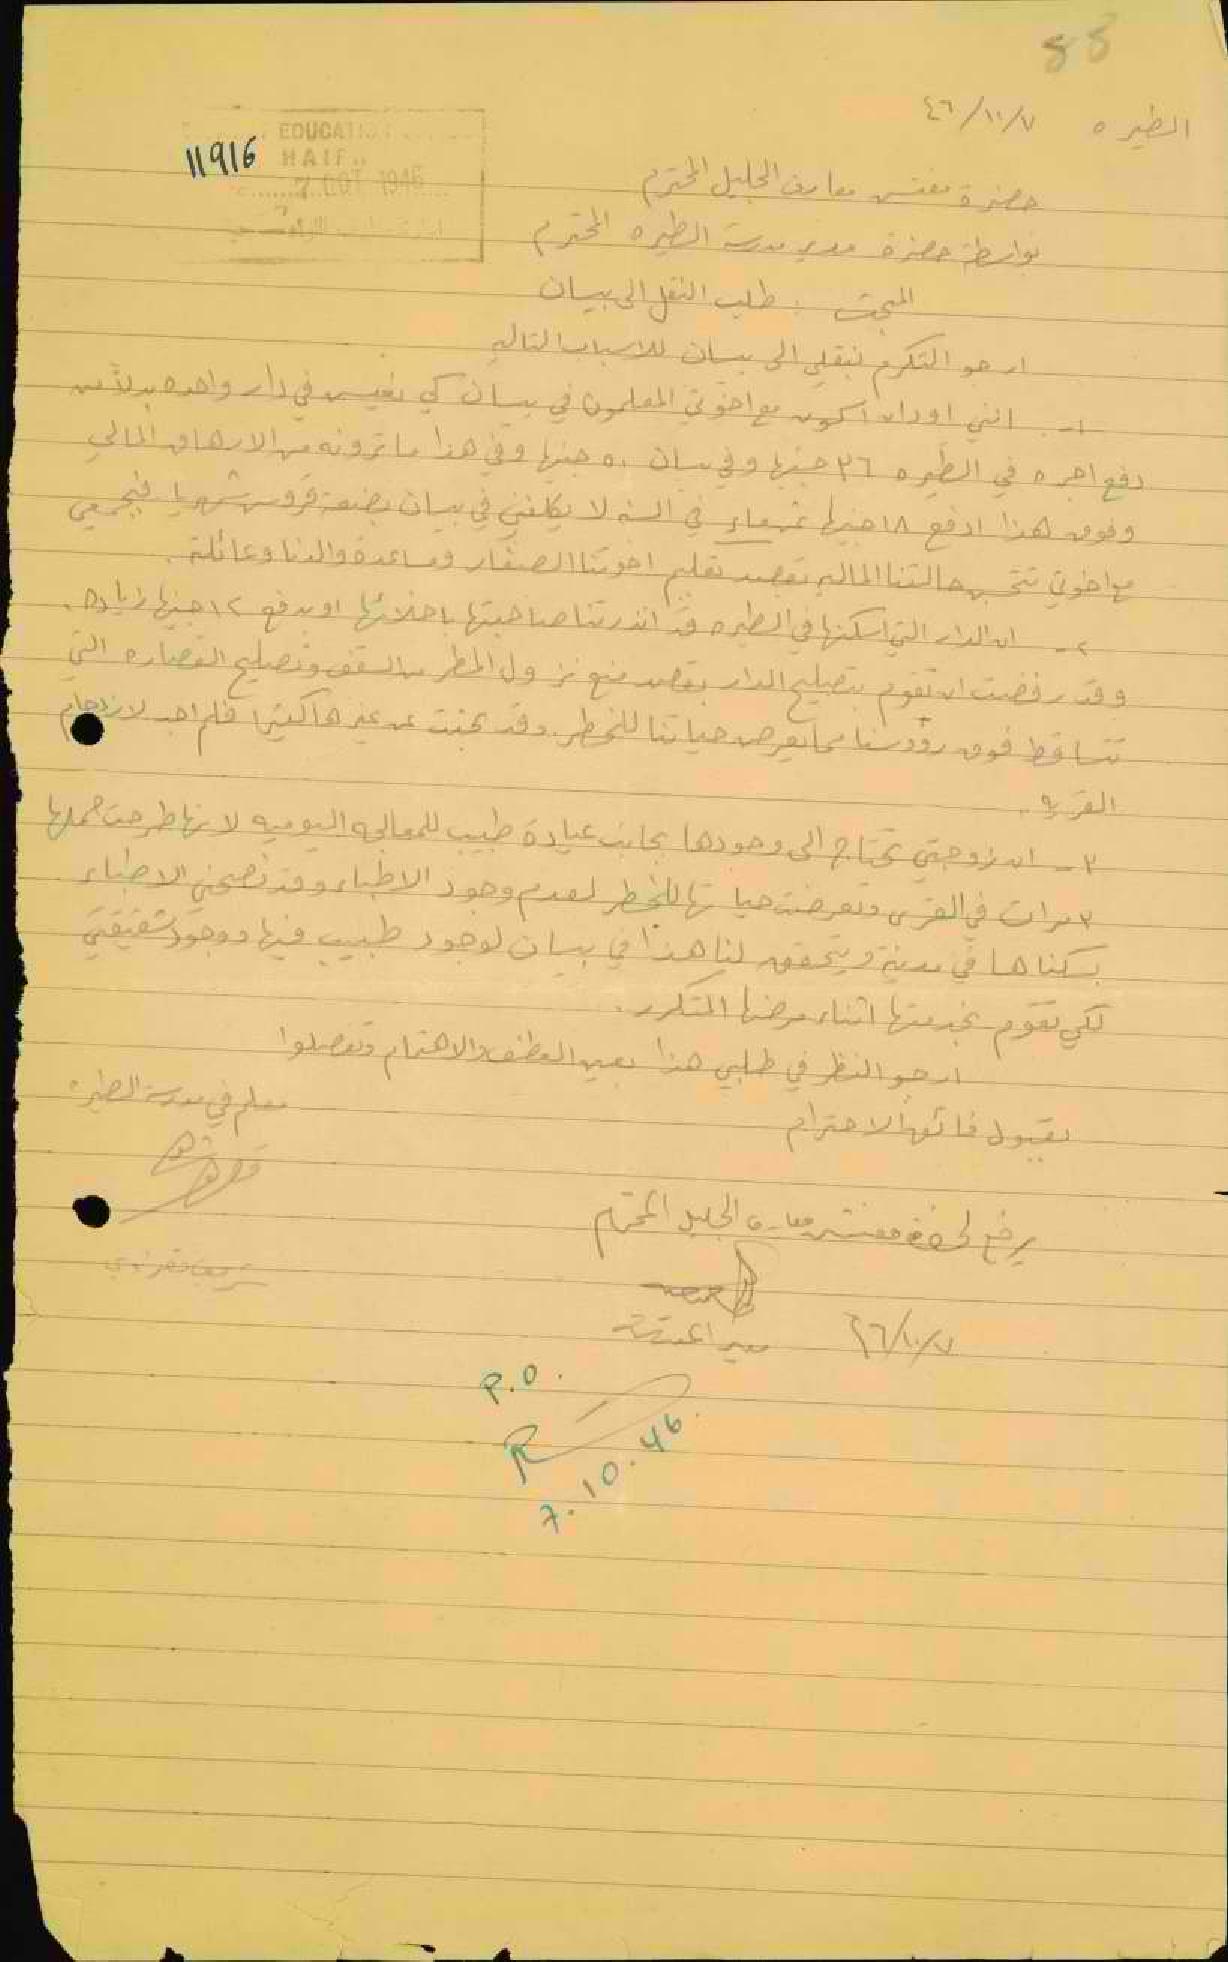 88
الطيره ٤٦/١٠/٧
EDUCATION
HAIFA
11916
7 OCT 1946
حضرة مفتش معارف الجليل المحترم
بواسطة حضرة مدير مدرسة الطيره المحترم
المبحث : طلب النقل الى بيسان
ارجو التكرم بنقلي الى بيسان للاسباب التاليه
١- انني اود ان اكون مع اخوتي المعلمون في بيسان كي نعيش في دار واحده بدلاً من
دفع اجره في الطيره ٣٦ جنيها وفي بيسان ٥٠ جنيها وفي هذا ما ترونه من الارهاق المالي
وفوق هذا ادفع ١٨ جنيها ثمن ماء في السنه لا يكلفني في بيسان بضعة قروش شهريا فبجمعي
مع اخوتي تتحسن حالتنا الماليه بقصد تعليم اخوتنا الصغار ومساعدة والدنا وعائلته .
٢- ان الدار التي اسكنها في الطيره قد انذرتنا صاحبتها باخلائها او بدفع ١٢ جنيها زياده .
وقد رفضت ان تقوم بتصليح الدار بقصد منع نزول المطر من السقف وتصليح القصاره التي
تتساقط فوق رؤوسنا مما يعرض حياتنا للخطر. وقد بحثت عن غيرها كثيرا فلم اجد لازدحام
القريه .
٣- ان زوجتي تحتاج الى وجودها بجانب عيادة طبيب للمعالجه اليوميه لانها طرحت حملها
٣ مرات في القرى وتعرضت حياتها للخطر لعدم وجود الاطباء وقد نصحني الاطباء
بسكناها في مدينة ويتحقق لنا هذا في بيسان لوجود طبيب فيها ووجود شقيقتي
لكي تقوم بخدمتها اثناء مرضها المتكرر .
ارجو النظر في طلبي هذا بعين العطف والاهتمام وتفضلوا
بقبول فائق الاحترام
معلم في مدرسة الطيره
يرفع لحضرة مفتش معارف الجليل المحترم
٤٦/١٠/٧
P.O.
R
7.10.46